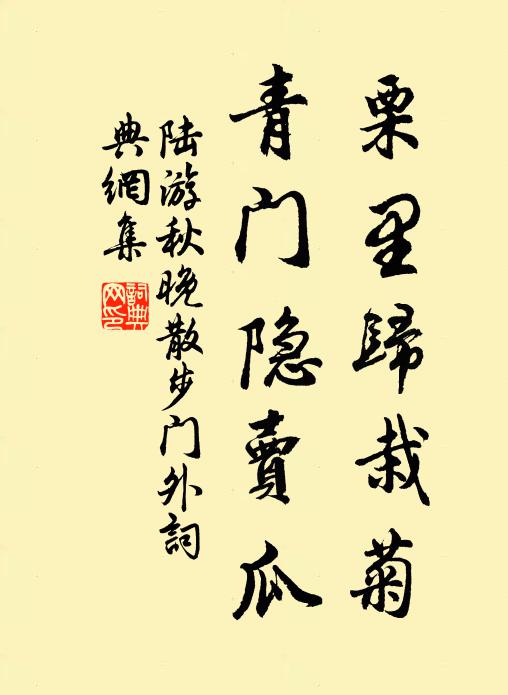 栗里歸栽菊
青门隐賣瓜
陆游秋晚散步门外詞
典網集
詞典网印